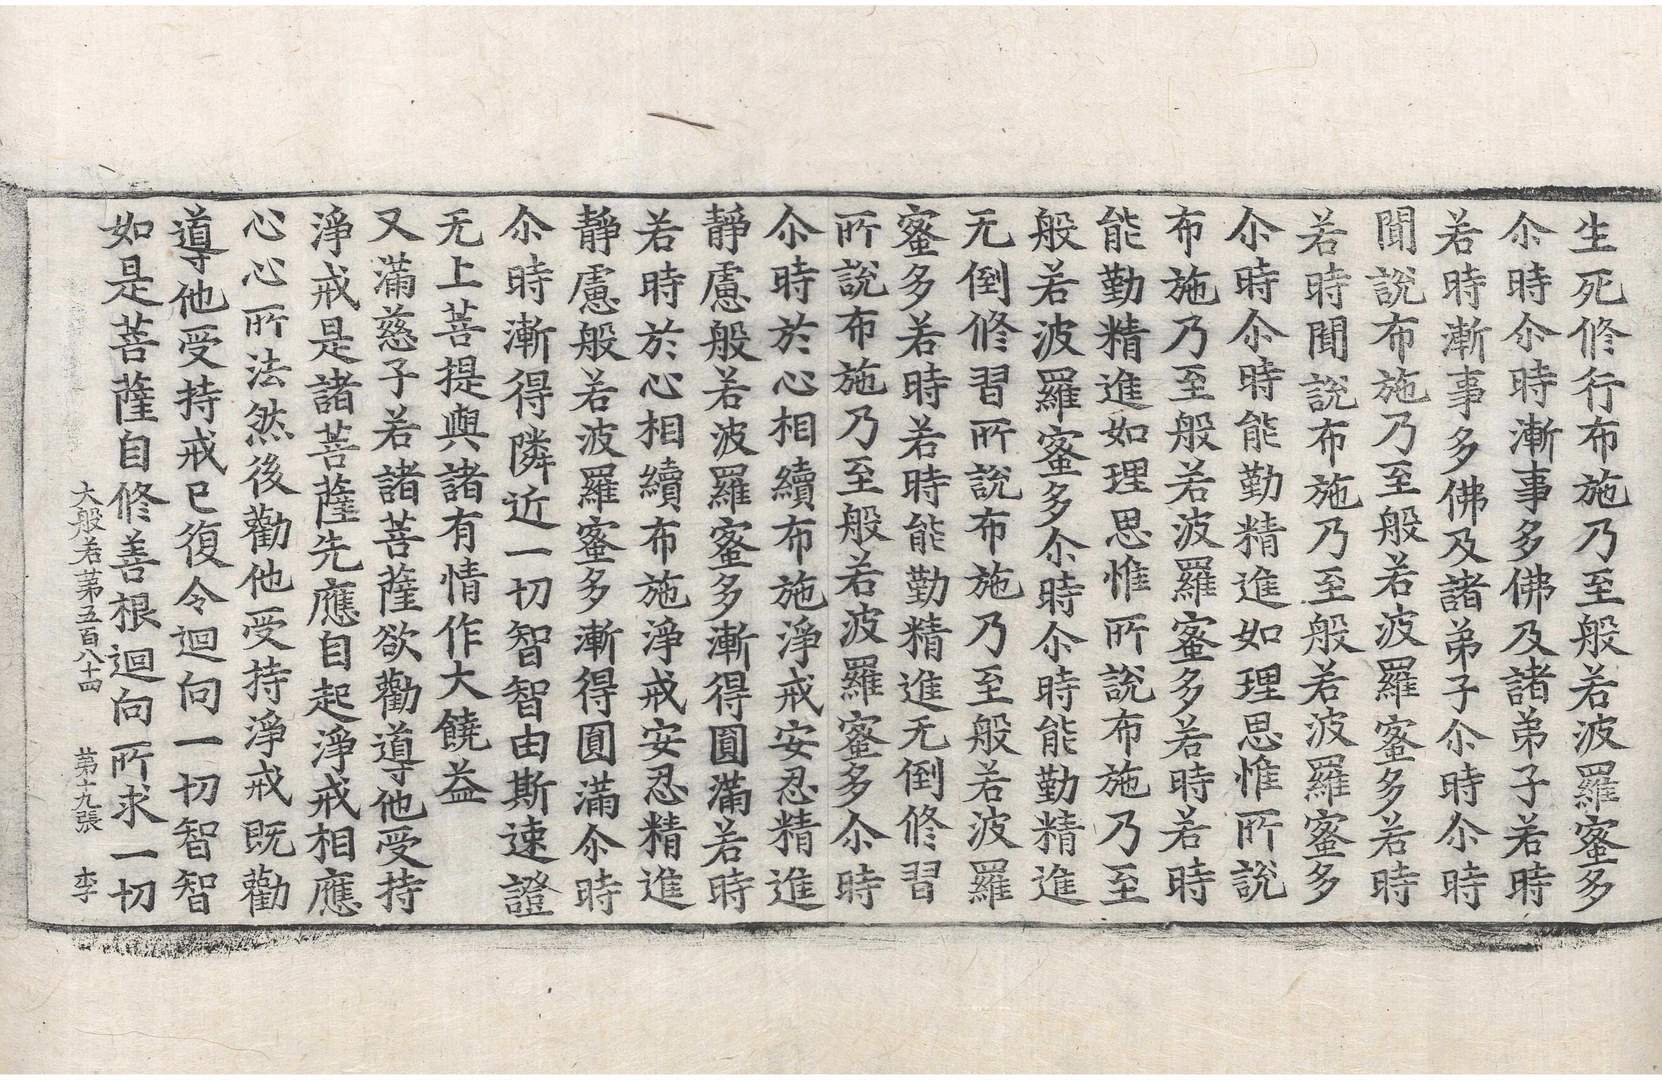 生死修行布施乃至般若波羅蜜多
尒時尒時漸事多佛及諸弟子若時
若時漸事多佛及諸弟子尒時尒時
聞說布施乃至般若波羅蜜多若時
若時聞說布施乃至般若波羅蜜多
尒時尒時能勤精進如理思惟所說
布施乃至般若波羅蜜多若時若時
能勤精進如理思惟所說布施乃至
般若波羅蜜多尒時尒時能勤精進
无倒修習所說布施乃至般若波羅
蜜多若時若時能勤精進无倒修習
所說布施乃至般若波羅蜜多尒時
尒時於心相續布施淨戒安忍精進
靜慮般若波羅蜜多漸得圓滿若時
若時於心相續布施淨戒安忍精進
靜慮般若波羅蜜多漸得圓滿尒時
尒時漸得隣近一切智智由斯速證
无上菩提與諸有情作大饒益
又滿慈子若諸菩薩欲勸導他受持
淨戒是諸菩薩先應自起淨戒相應
心心所法然後勸他受持淨戒既勸
導他受持戒已復令迴向一切智智
如是菩薩自修善根迴向所求一切
大般若第五百八十四 第十九張 李